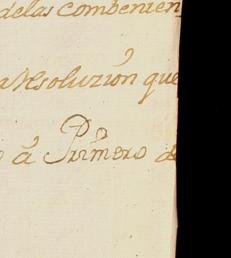 delas combenien
a resoluzion que
o á Primero de